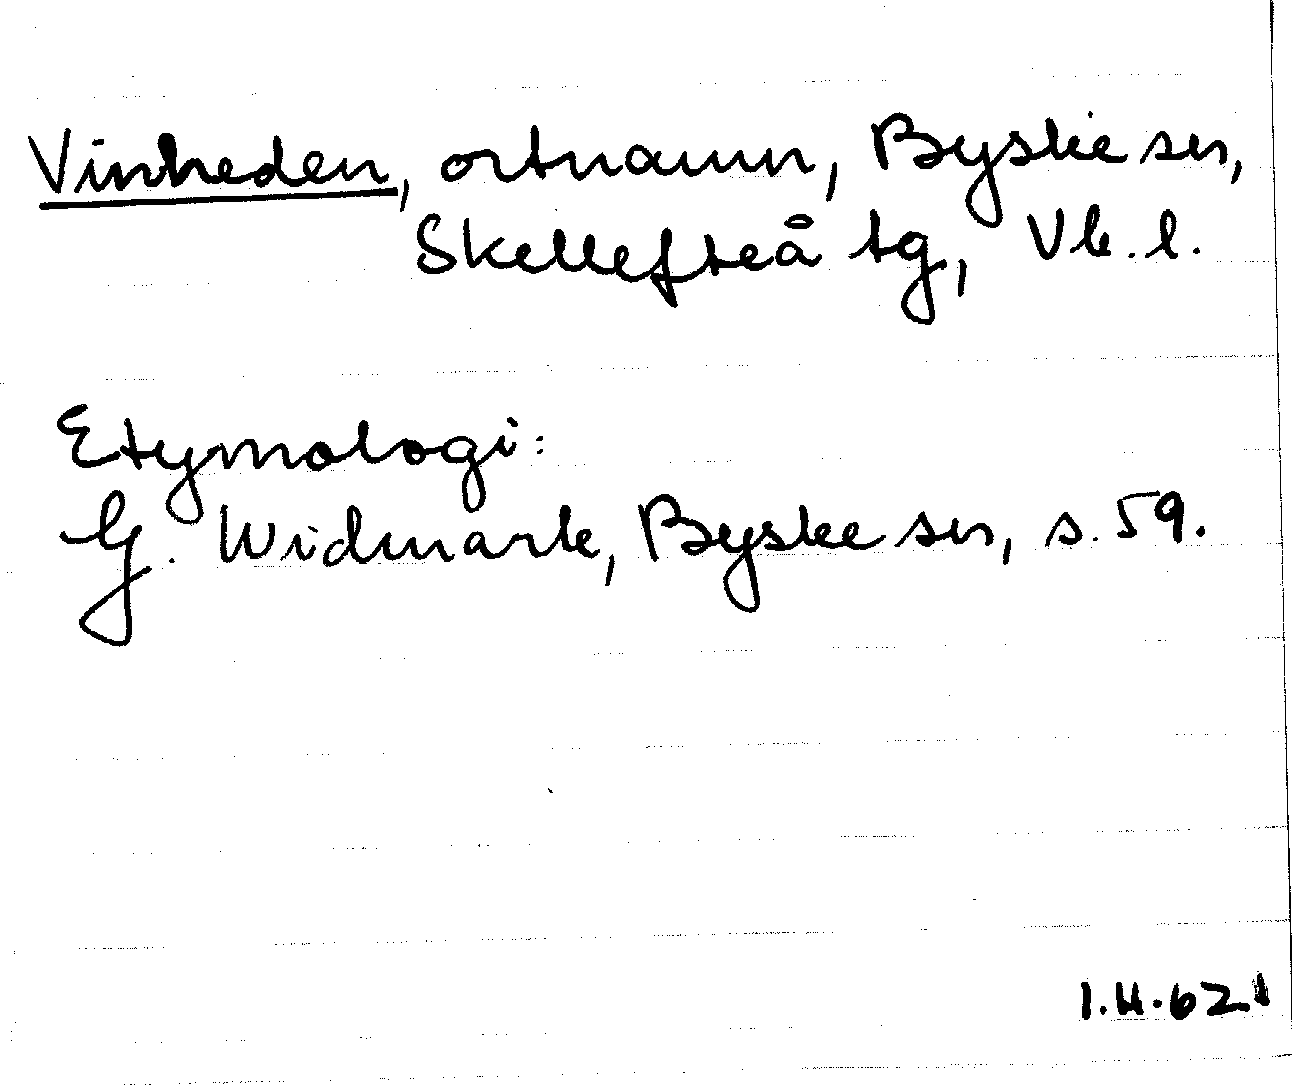 Vinheden, ortnamn, Byske sn,
Skellefteå tg, Vb. l.
Etymologi:
G. Widmark, Byske sn, s. 59.